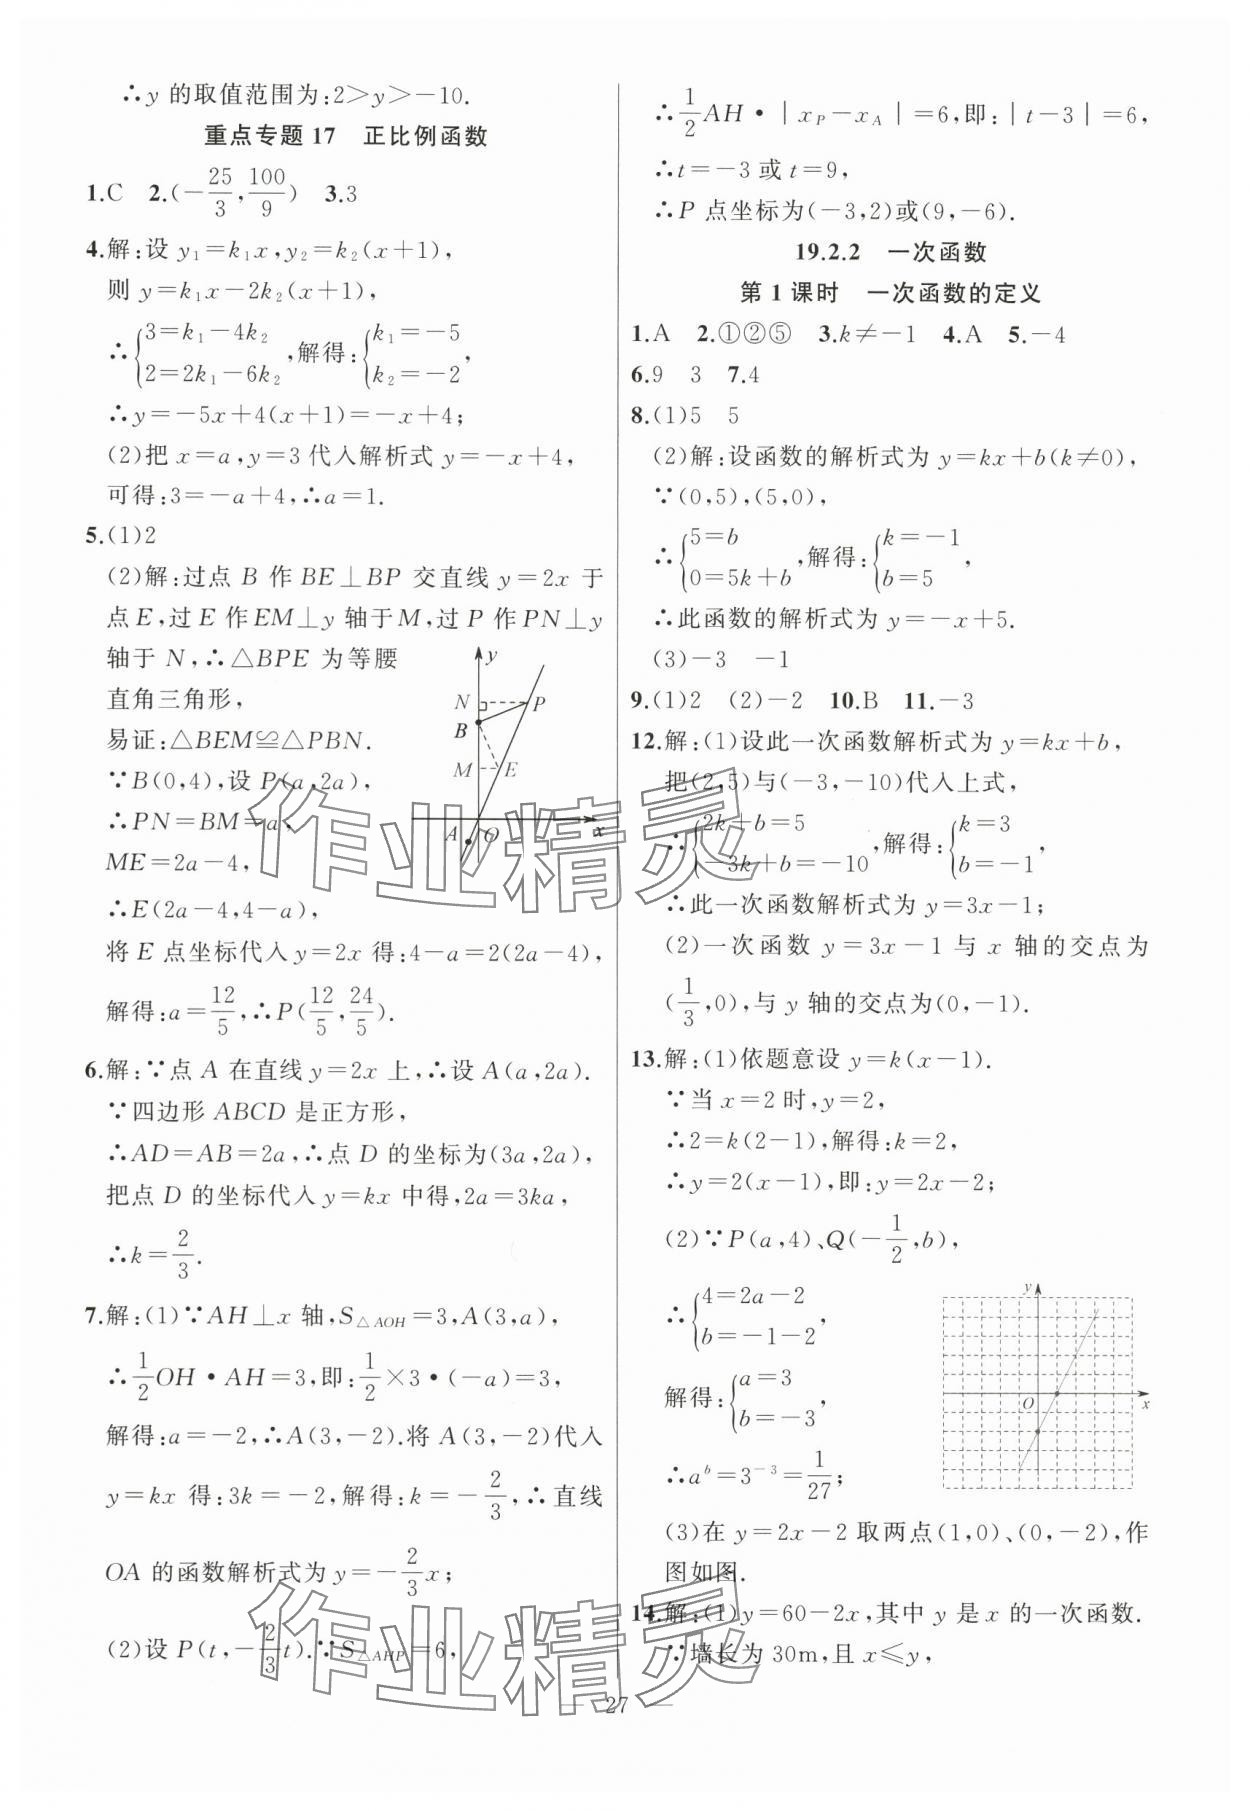 ∴y 的取值范围为:2>y>-10.
重点专题 17 正比例函数
1.C 2.(-25/3,100/9) 3.3
4.解:设 y₁=k₁x,y₂=k₂(x+1),
则 y=k₁x-2k₂(x+1),
∴{3=k₁-4k₂ 2=2k₁-6k₂,解得:{k₁=-5 k₂=-2,
∴y=-5x+4(x+1)=-x+4;
(2)把 x=a,y=3代入解析式 y=-x+4,
可得:3=-a+4,∴a=1.
5.(1)2
(2)解:过点 B 作 BE⊥BP 交直线 y=2x 于
点E,过 E 作EM⊥y 轴于M,过 P 作PN⊥y
轴于 N,∴△BPE 为等腰
直角三角形,
易证:△BEM≌△PBN.
∵B(0,4),设 P(a,2a),
∴PN=BM=a,
ME=2a-4,
∴E(2a-4,4-a),
y
N
P
B
M
E
A
O
x
将 E 点坐标代入 y=2x 得:4-a=2(2a-4),
解得:a=12/5,∴P(12/5,24/5).
6.解:∵点 A 在直线 y=2x 上,∴设 A(a,2a).
∵四边形 ABCD 是正方形,
∴AD=AB=2a,∴点 D 的坐标为(3a,2a),
把点 D 的坐标代入 y=kx 中得,2a=3ka,
∴k=2/3.
7.解:(1)∵AH⊥x 轴,S△AOH=3,A(3,a),
∴1/2OH·AH=3,即:1/2×3·(-a)=3,
解得:a=-2,∴A(3,-2).将 A(3,-2)代入
y=kx 得:3k=-2,解得:k=-2/3,∴直线
OA 的函数解析式为 y=-2/3x;
(2)设 P(t,-2/3t).∵S△AHP=6,
∴1/2AH·|xP-xA|=6,即:|t-3|=6,
∴t=-3或 t=9,
∴P 点坐标为(-3,2)或(9,-6).
19.2.2 一次函数
第 1 课时 一次函数的定义
1.A 2.①②⑤ 3.k≠-1 4.A 5.-4
6.9 3 7.4
8.(1)5 5
(2)解:设函数的解析式为 y=kx+b(k≠0),
∵(0,5),(5,0),
∴{5=b 0=5k+b,解得:{k=-1 b=5,
∴此函数的解析式为 y=-x+5.
(3)-3 -1
9.(1)2 (2)-2 10.B 11.-3
12.解:(1)设此一次函数解析式为 y=kx+b,
把(2,5)与(-3,-10)代入上式,
∴{2k+b=5 -3k+b=-10,解得:{k=3 b=-1,
∴此一次函数解析式为 y=3x-1;
(2)一次函数 y=3x-1 与 x 轴的交点为
(1/3,0),与 y 轴的交点为(0,-1).
13.解:(1)依题意设 y=k(x-1).
∵当 x=2时,y=2,
∴2=k(2-1),解得:k=2,
∴y=2(x-1),即:y=2x-2;
(2)∵P(a,4)、Q(-1/2,b),
∴{4=2a-2 b=-1-2,
解得:{a=3 b=-3,
∴aᵇ=3⁻³=1/27;
y
O
x
(3)在 y=2x-2取两点(1,0)、(0,-2),作
图如图.
14.解:(1)y=60-2x,其中 y 是 x 的一次函数.
∵墙长为30m,且 x≤y,
— 27 —
作业精灵
作业精灵